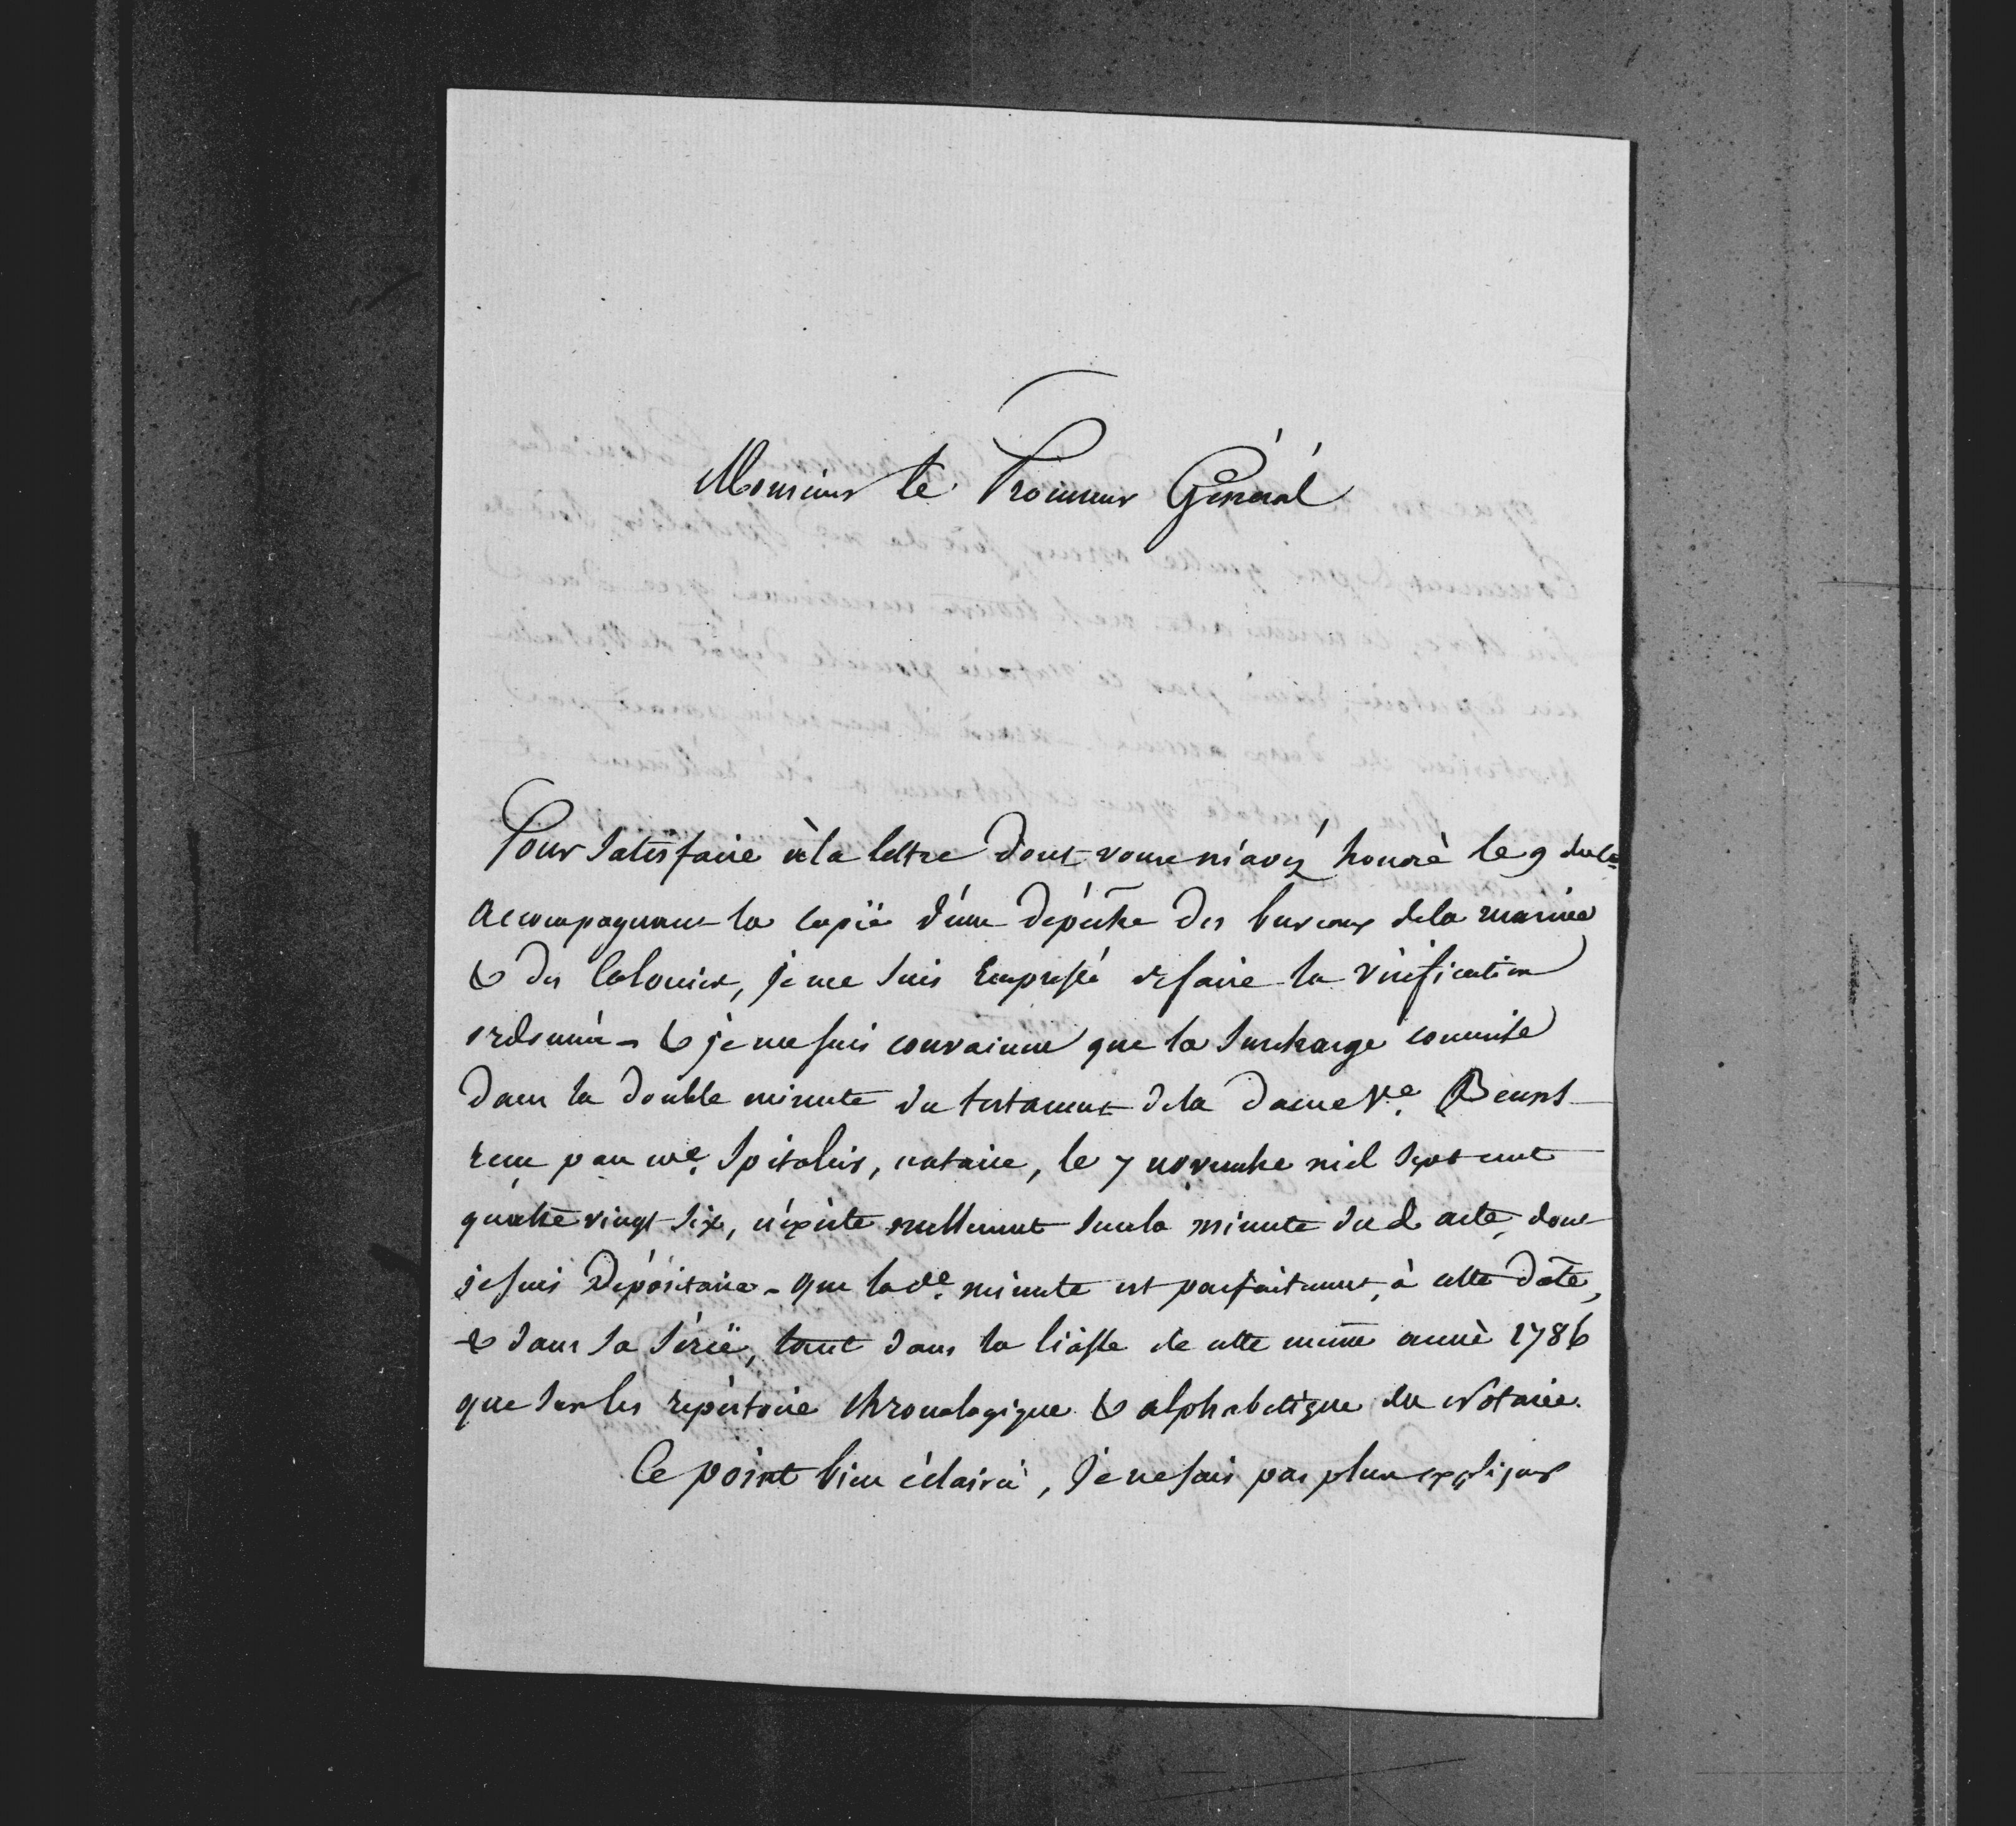 Monsieur le Procureur Général
Pour Satisfaire à la lettre dont vous m'avez honoré le 9 du Ct
accompagnant la copïe d'une dépêche des bureaux de la marine
& des Colonies, je me suis empressé de faire la vérification
ordonnée - & je me suis convaincu que la Surcharge commise
dans la double minute du testament de la dame Ve.
reçu par me. Spitalier, notaire, le 7 novembre mil Sept cent
quatre vingt Six, n'éxiste nullement sur la minute dud. acte, dont
je suis Dépositaire - que lade. minute est parfaitement, à cette date,
& dans sa Série, tant dans la liasse de cette même année 1786
que sur les répértoire chronologique & alphabétique du Notaire.
Ce point bien éclairci, Je ne sais pas plus expliquer